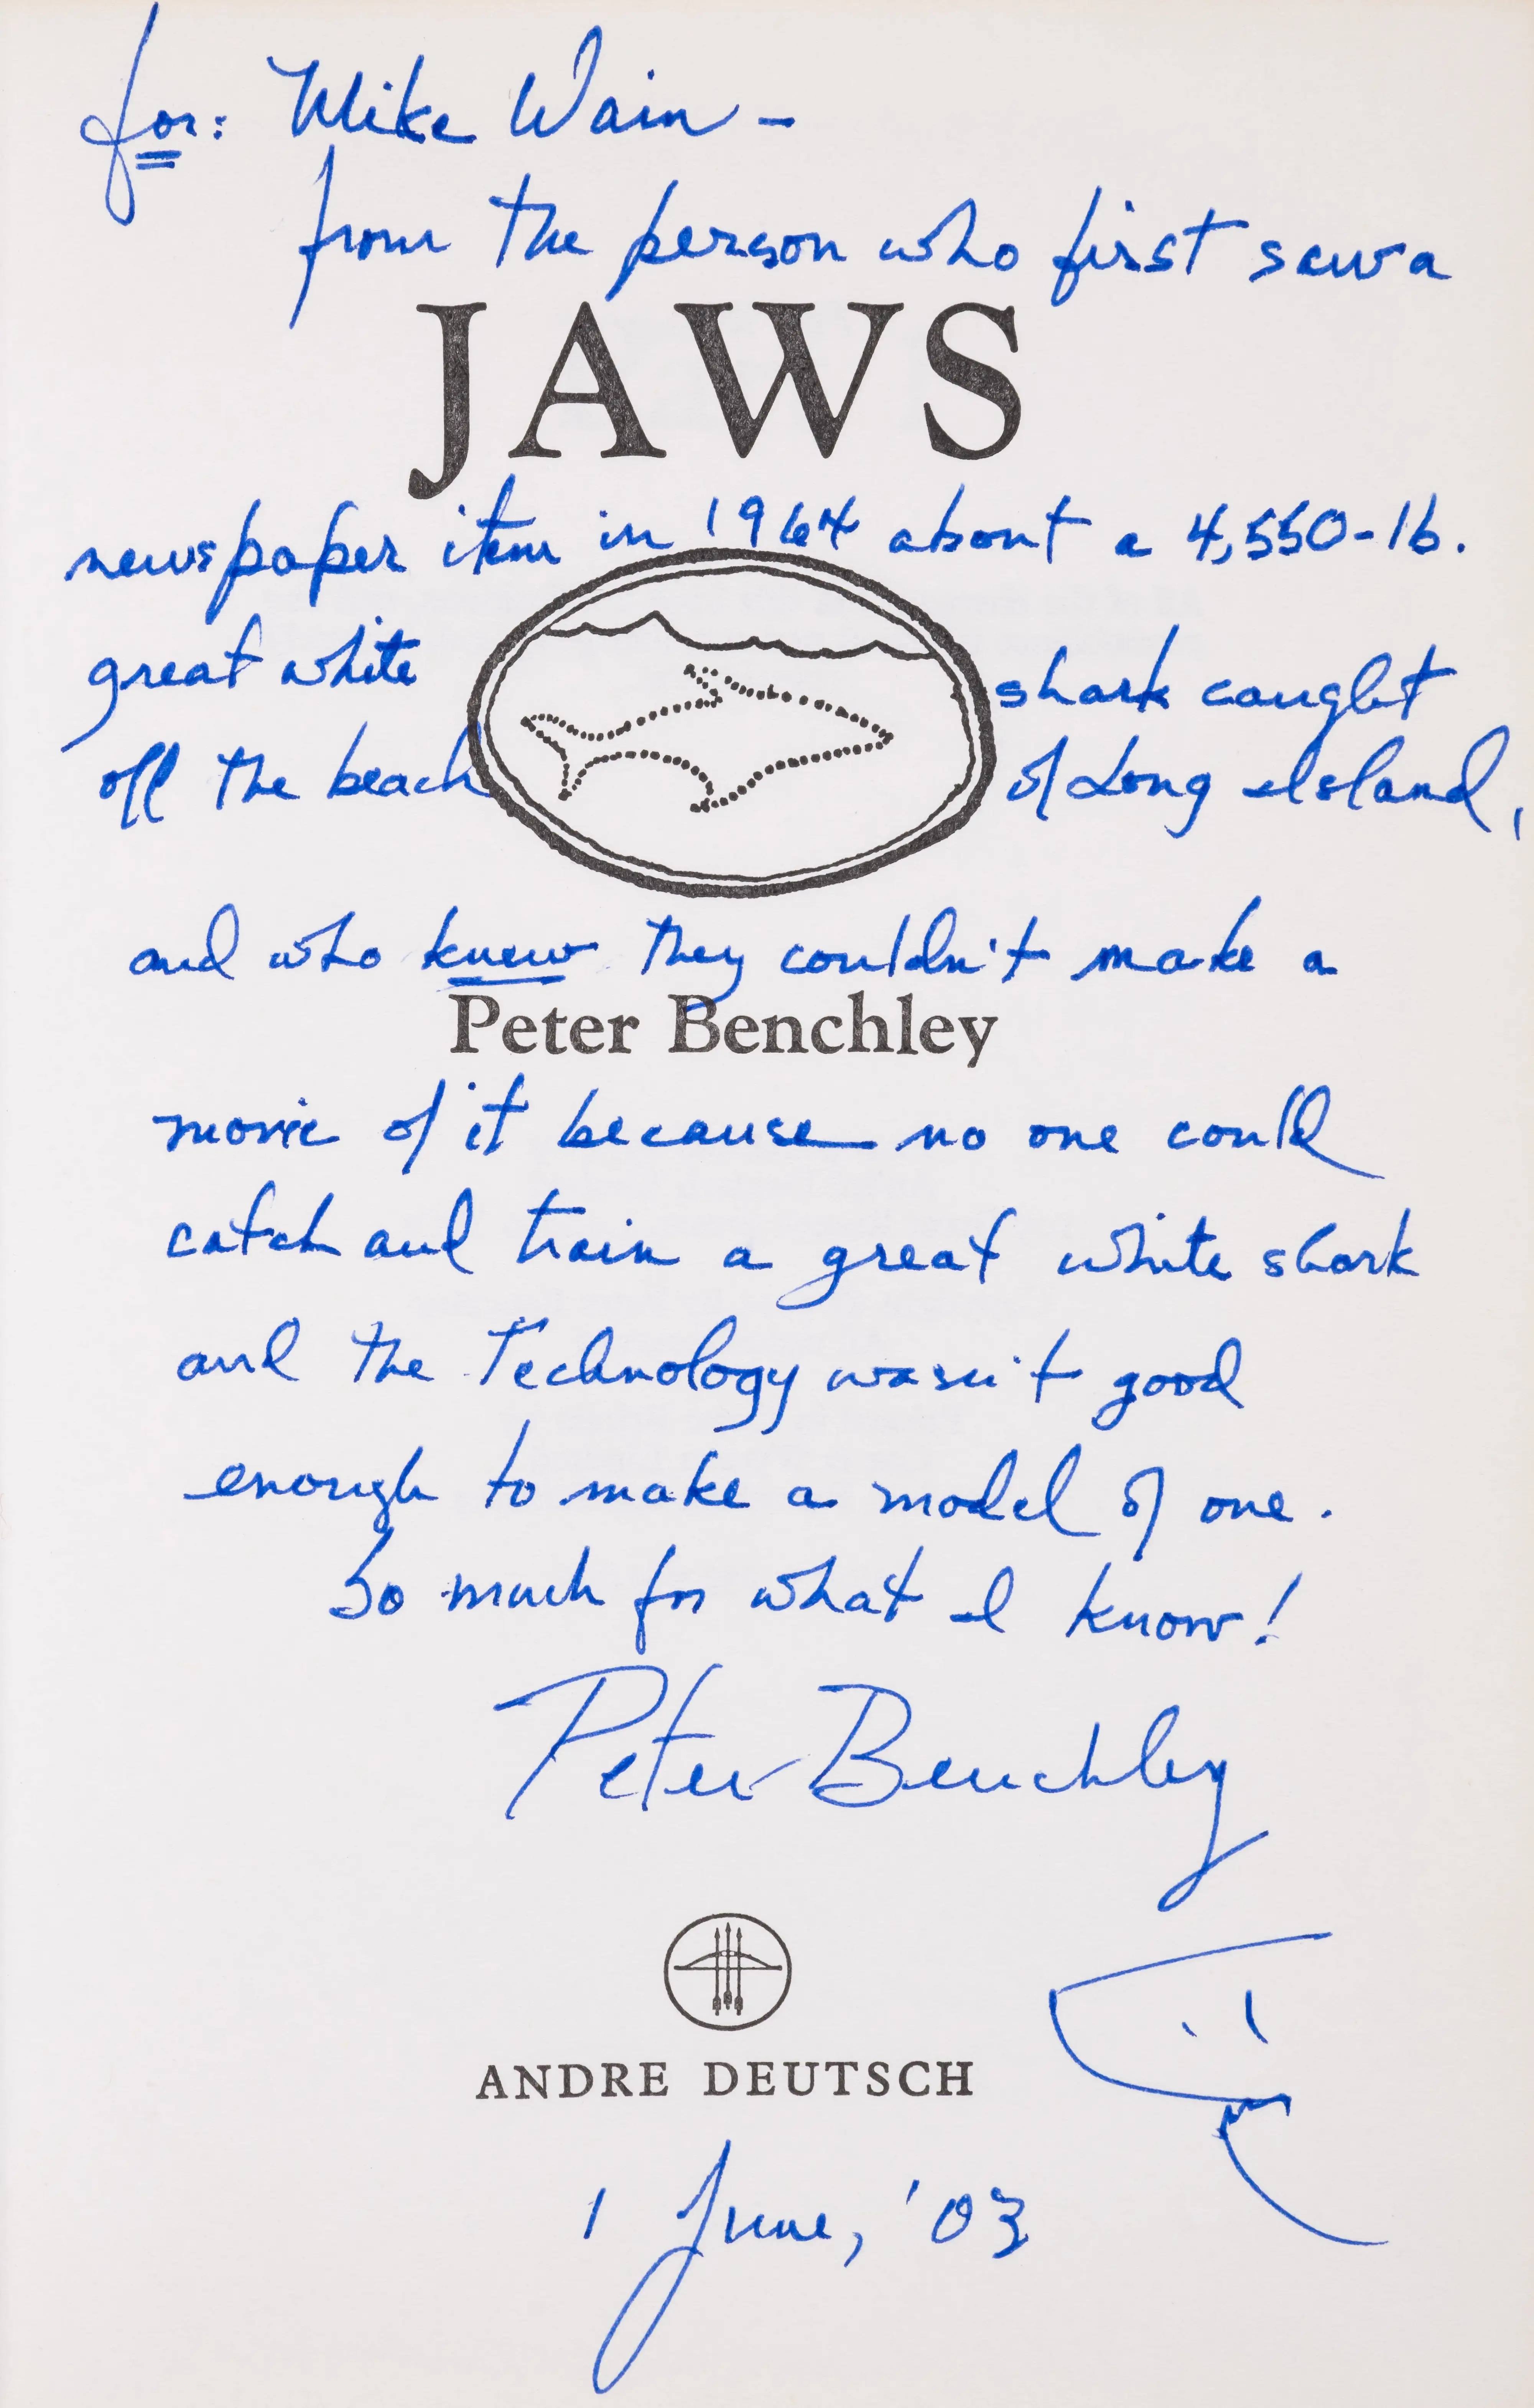 for: Mike Wain -
from the person who first saw a
JAWS
newspaper item in 1964 about a 4,550-lb.
great white shark caught
off the beach of Long Island,
and who knew they couldn't make a
Peter Benchley
movie of it because no one could
catch and train a great white shark
and the Technology wasn't good
enough to make a model of one.
So much for what I know!
Peter Benchley
ANDRE DEUTSCH
1 June, '03